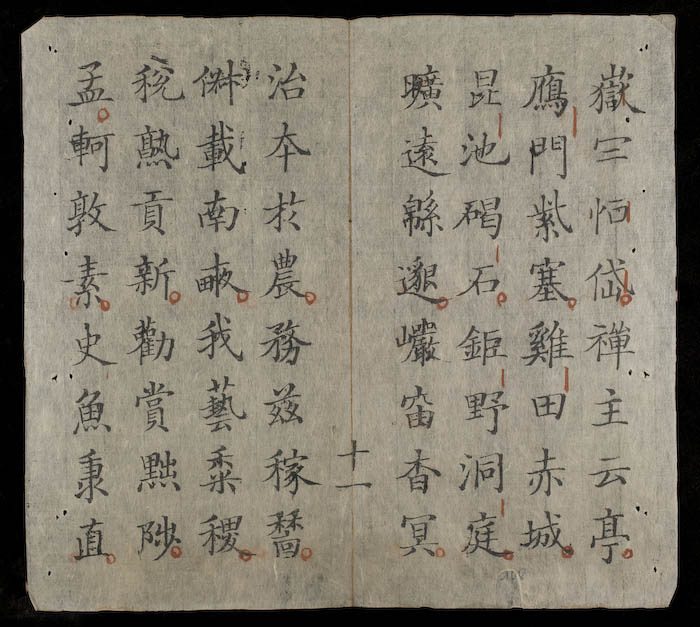 嶽宗恒岱禪主云亭
鴈門紫塞雞田赤城
昆池碣石鉅野洞庭
曠遠緜邈巖峀杳冥
十一
治夲於農務兹稼穡
俶載南畝我藝黍稷
稅熟貢新勸賞黜陟
孟軻敦素史魚秉直